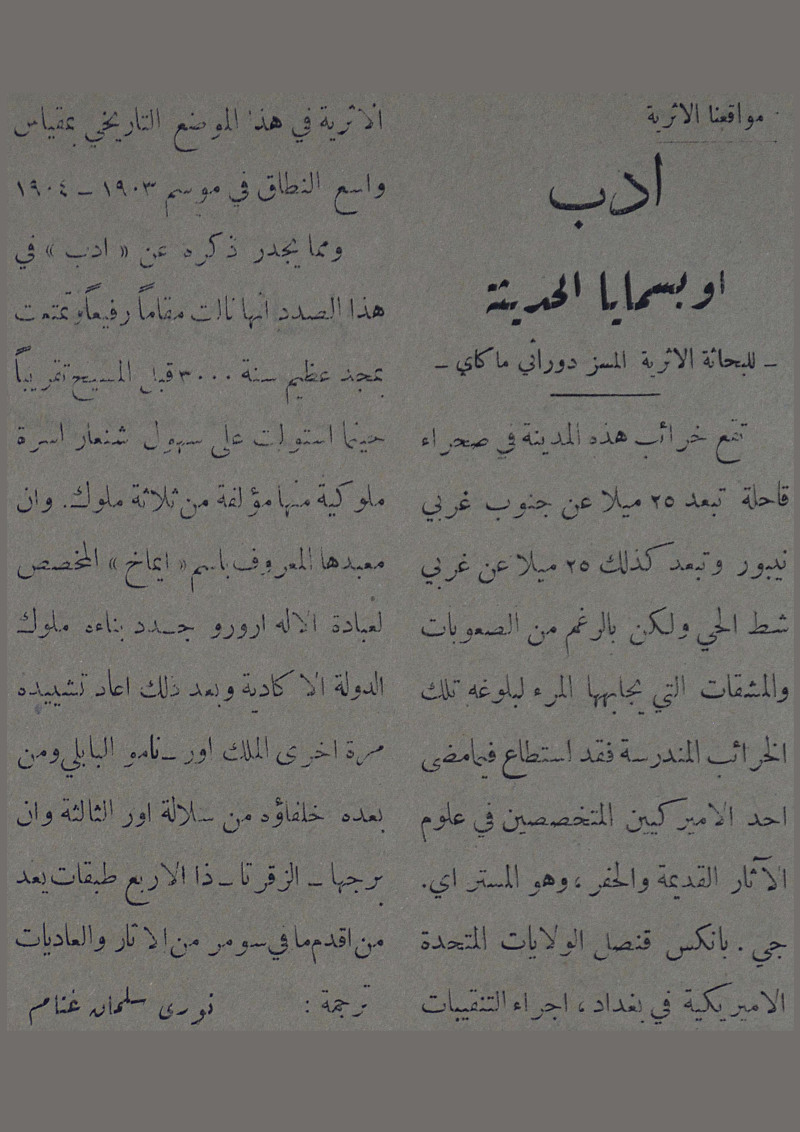 مواقعنا الاثرية
ادب
او بسمايا الحديثة
ـ للبحاثة الاثرية المسز دوراثي ماكاي ـ
تقع خرائب هذه المدينة في صحراء
قاحلة تبعد ٢٥ ميلا عن جنوب غربي
نيبور وتبعد كذلك ٢٥ ميلا عن غربي
شط الحي ولكن بالرغم من الصعوبات
والمشقات التي يجابهها المرء لبلوغه تلك
الخرائب المندرسة فقد استطاع فيمامضى
احد الاميركيين المتخصصين في علوم
الآثار القديمة والحفر ، وهو المستر اي.
جي . بانكس قنصل الولايات المتحدة
الاميريكية في بغداد ، اجراء التنقيبات
الاثرية في هذا الموضع التاريخي بمقياس
واسع النطاق في موسم ١٩٠٣ ـ ١٩٠٤
ومما يجدر ذكره عن « ادب » في
هذا الصدد انها نالت مقاماً رفيعاً وتمتعت
بمجد عظيم سنة ٣٠٠٠ قبل المسيح تقريباً
حينما استولت على سهول شنعار اسرة
ملوكية منها مؤلفة من ثلاثة ملوك. وان
معبدها المعروف باسم « ايماخ » المخصص
لعبادة الاله ارورو جــدد بناءه ملوك
الدولة الاكادية وبعد ذلك اعاد تشييده
مرة اخرى الملك اور ـ نامو البابلي ومن
بعده خلفاؤه من سلالة اور الثالثة وان
برجها ـ الزقرتا ـ ذا الاربع طبقات يعد
من اقدم ما في سومر من الاثار والعاديات
ترجمة : نورى سلمان غنام